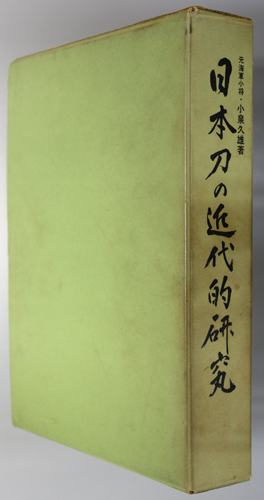 元海軍少将・小泉久雄著
日本刀の近代的研究